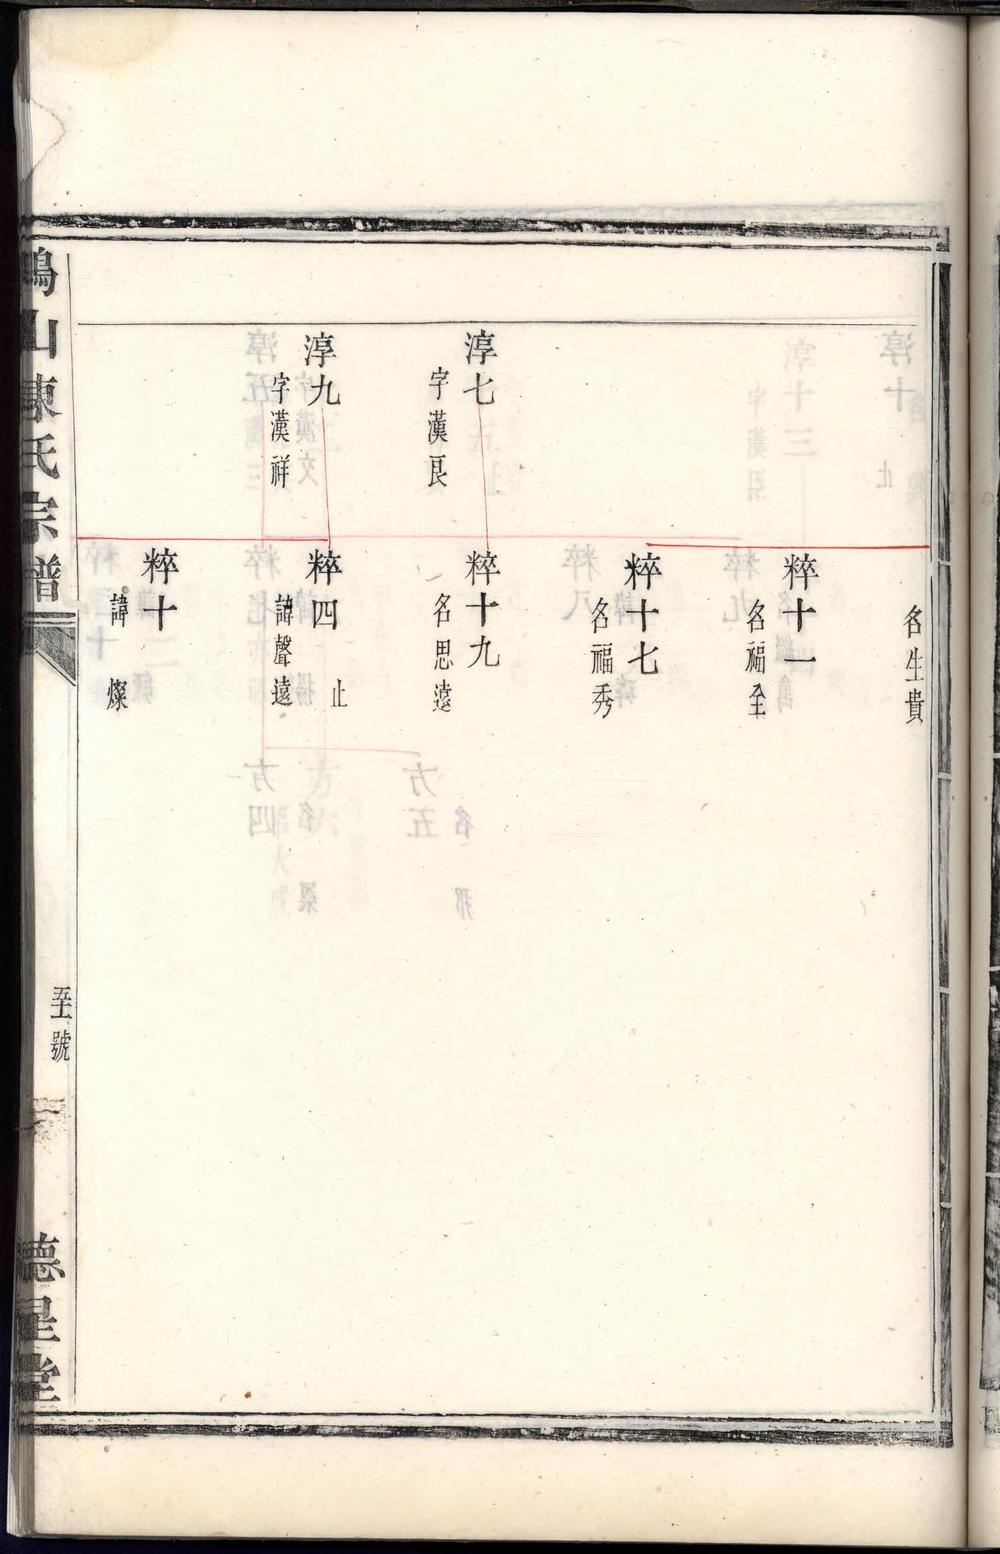 名生貴
粹十一
名福全
粹十七
名福秀
淳七
字漢良
粹十九
名思遠
淳九
字漢祥
粹四
止
諱聲遠
粹十
諱燦
山陳氏宗譜
號
德星堂